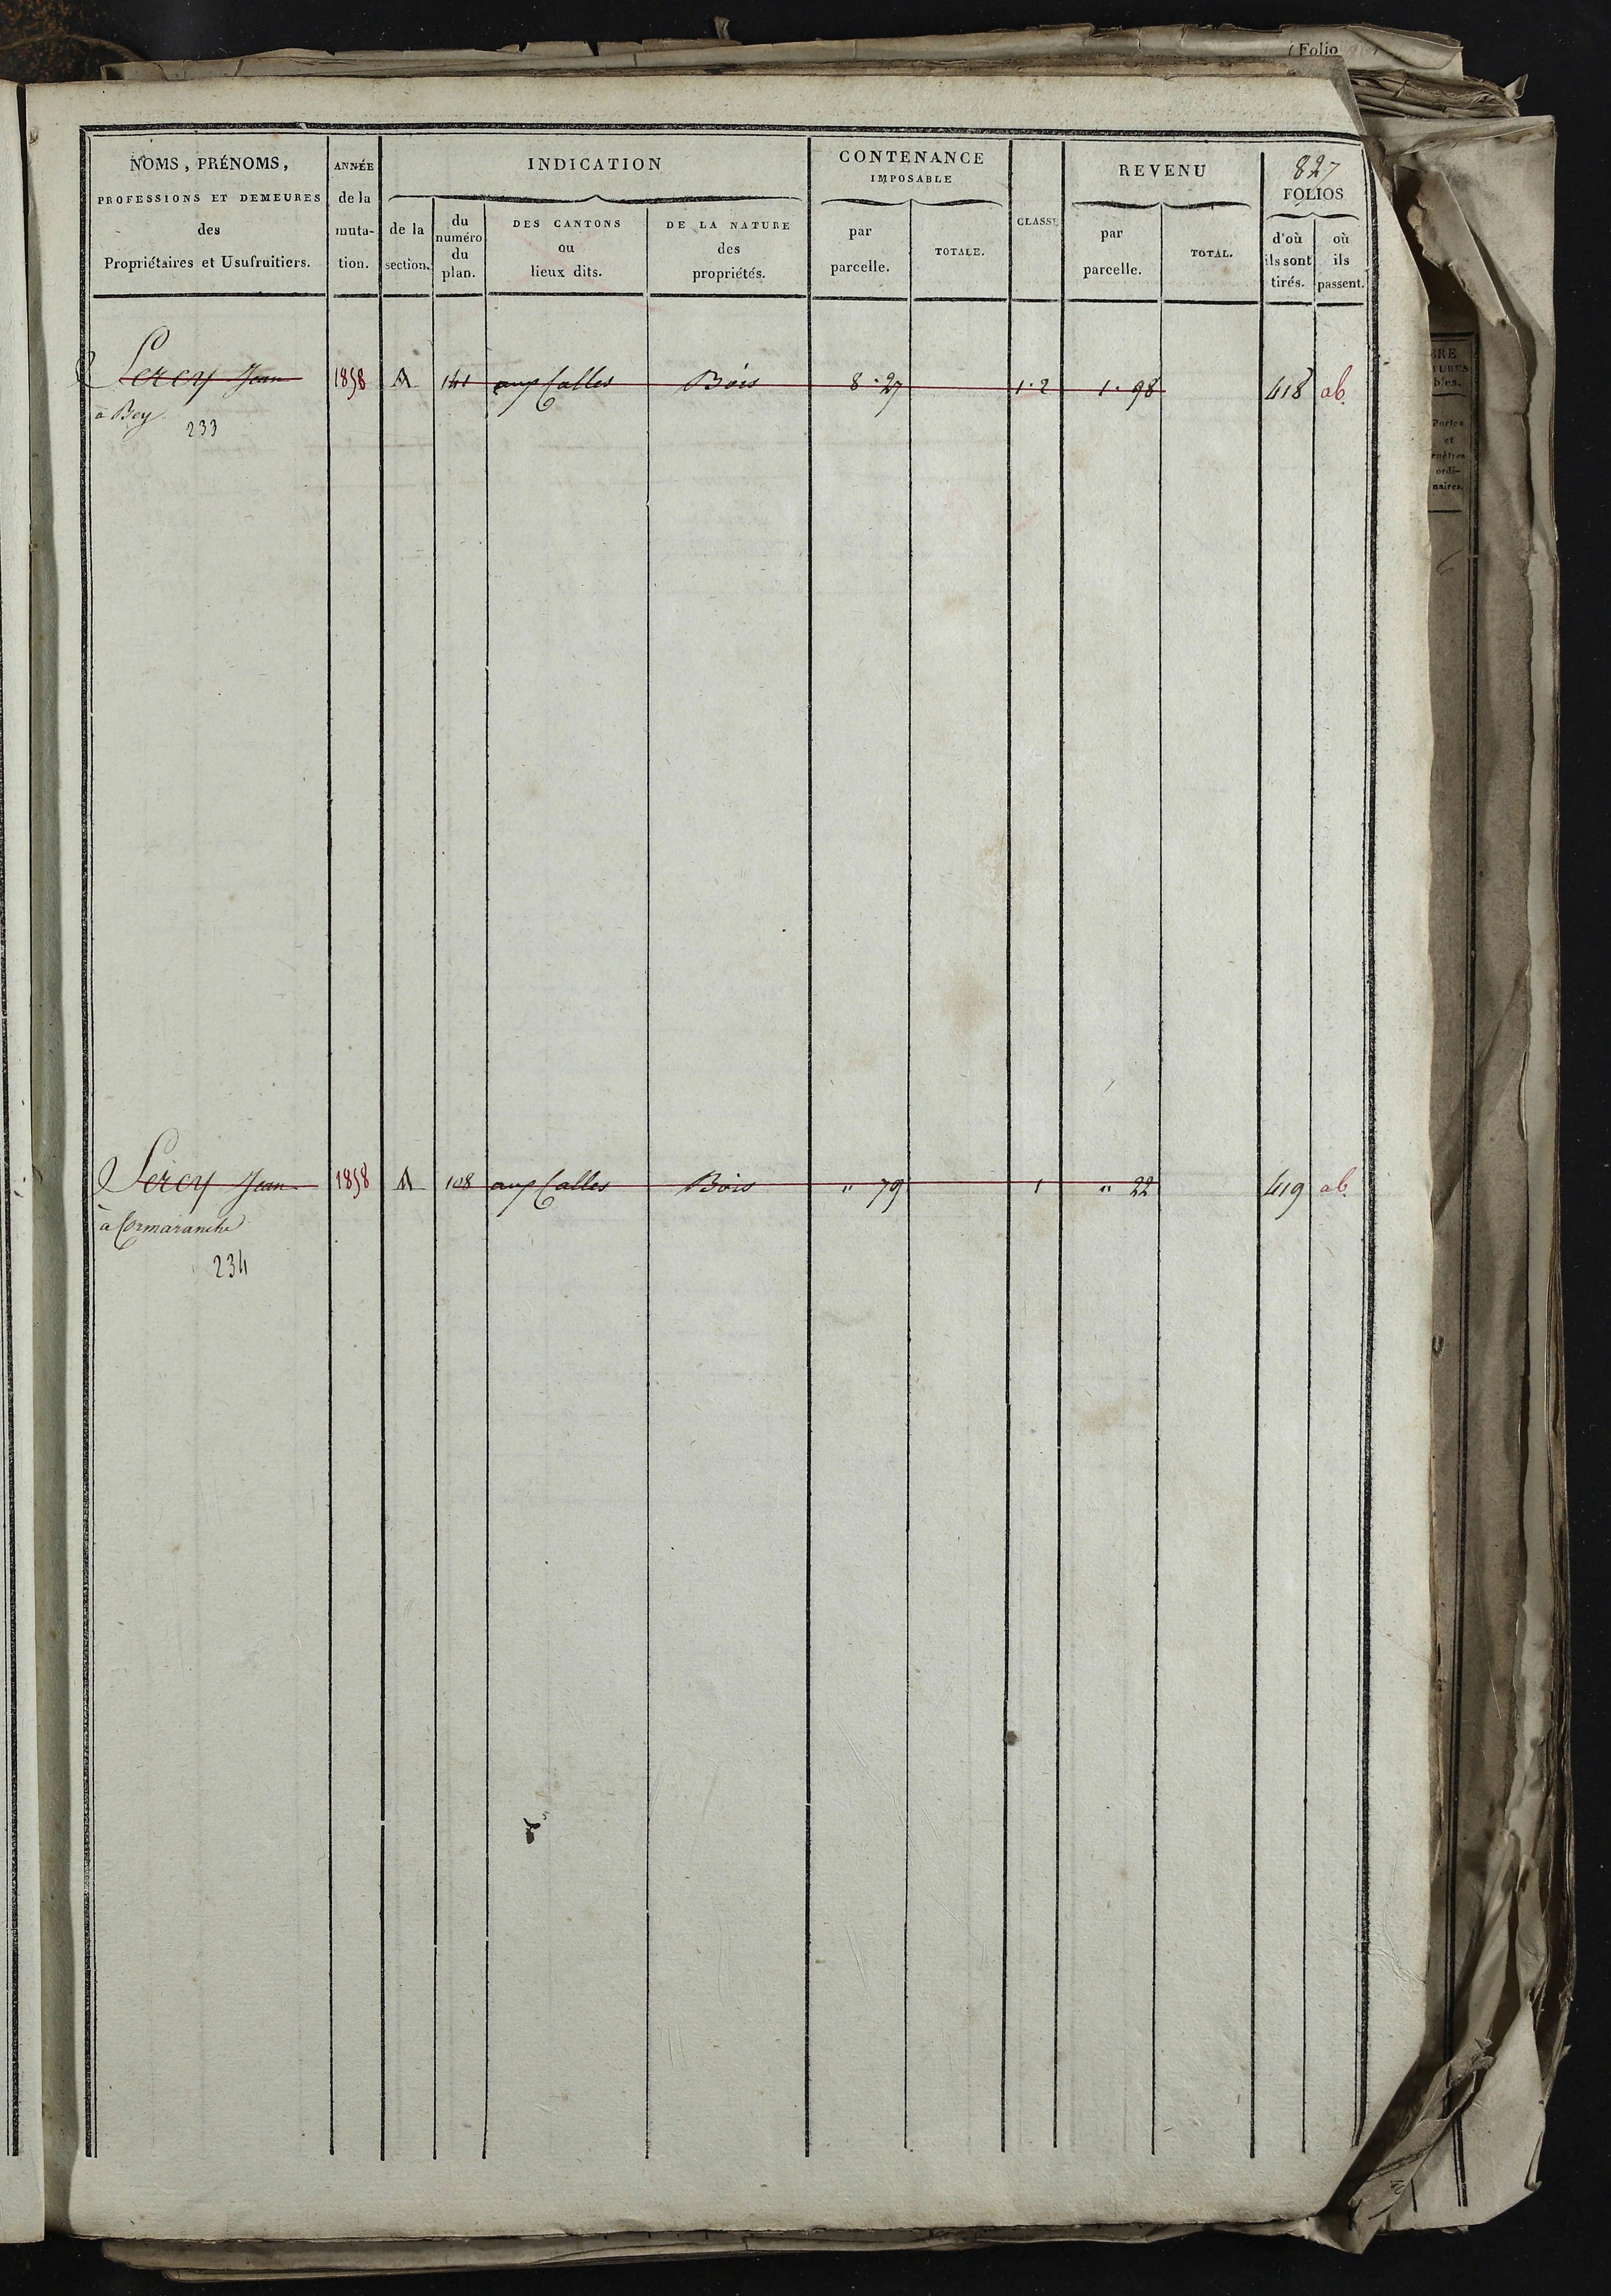 ( Folio
NOMS, PRÉNOMS,
PROFESSIONS ET DEMEURES
des
Propriétaires et Usufruitiers.
ANNÉE
de la
muta-
tion.
INDICATION
de la
section.
du
numéro
du
plan.
DES CANTONS
ou
lieux dits.
DE LA NATURE
des
propriétés.
CONTENANCE
IMPOSABLE
par
parcelle.
TOTALE.
CLASSE
REVENU
par
parcelle.
TOTAL.
827
FOLIOS
d'où
ils sont
tirés.
où
ils
passent.
Jean 1858 A 141 aux Calles Bois 8.27 1.2 1.98 418 ab.
à Bey
233
Jean 1858 A 108 aux Calles Bois " 79 1 " 22 419 ab.
à Cormaranche
234
BRE
TURES
bles.
Portes
et
enêtres
ordi-
naires.